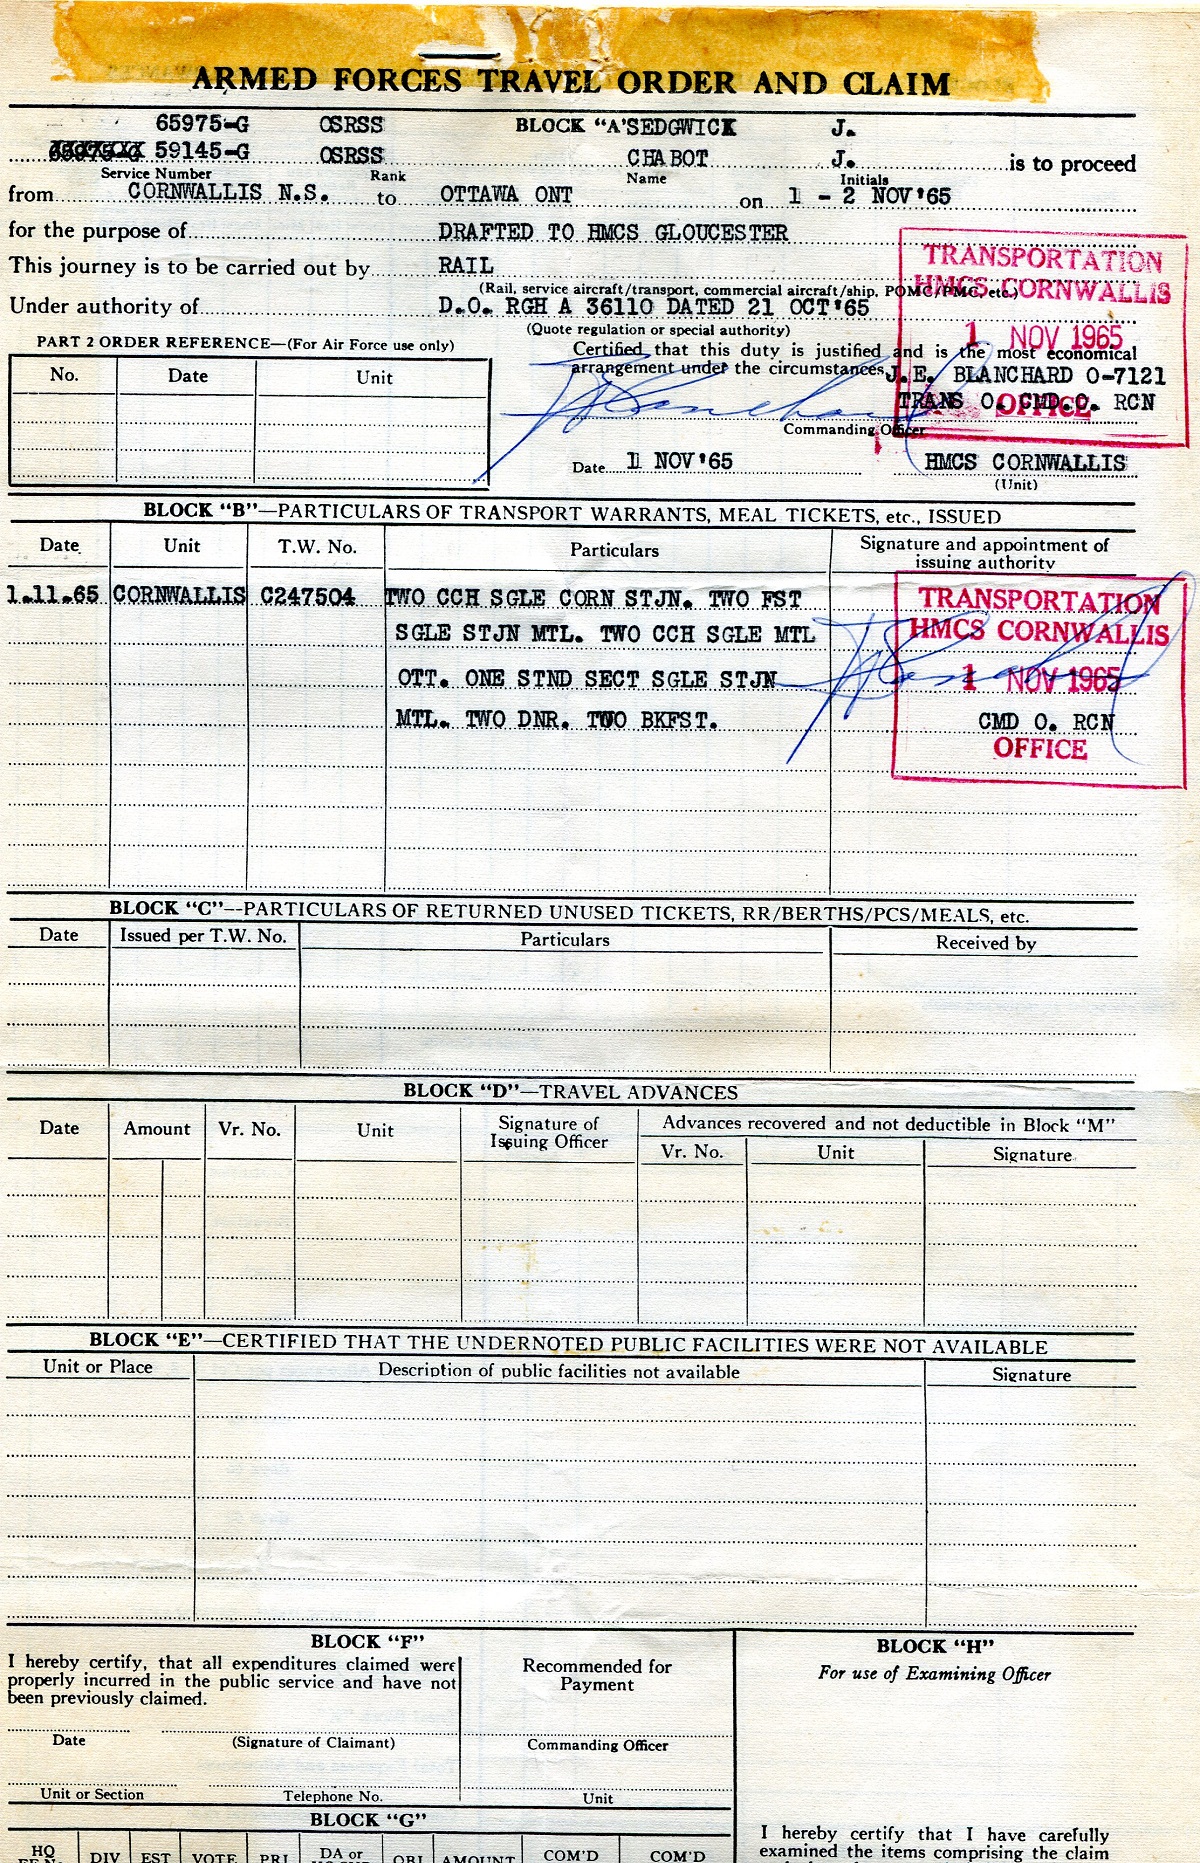 ARMED FORCES TRAVEL ORDER AND CLAIM
65975-G OSRSS BLOCK "A" SEDGWICK J.
59145-G OSRSS CHABOT J. is to proceed
Service Number Rank Name Initials
from CORNWALLIS N.S. to OTTAWA ONT on 1 - 2 NOV'65
for the purpose of DRAFTED TO HMCS GLOUCESTER
This journey is to be carried out by RAIL
(Rail, service aircraft/transport, commercial aircraft/ship, POMC/PMC, etc.)
Under authority of D.O. RGH A 36110 DATED 21 OCT'65
(Quote regulation or special authority)
TRANSPORTATION
HMCS CORNWALLIS
1 NOV 1965
OFFICE
PART 2 ORDER REFERENCE—(For Air Force use only)
No. Date Unit
Certified that this duty is justified and is the most economical
arrangement under the circumstances
J.E. BLANCHARD O-7121
TRANS O. CMD.O. RCN
Commanding Officer
Date 1 NOV'65 HMCS CORNWALLIS
(Unit)
BLOCK "B"—PARTICULARS OF TRANSPORT WARRANTS, MEAL TICKETS, etc., ISSUED
Date Unit T.W. No. Particulars Signature and appointment of
issuing authority
1.11.65 CORNWALLIS C247504 TWO CCH SGLE CORN STJN. TWO FST
SGLE STJN MTL. TWO CCH SGLE MTL
OTT. ONE STND SECT SGLE STJN
MTL. TWO DNR. TWO BKFST.
TRANSPORTATION
HMCS CORNWALLIS
1 NOV 1965
CMD O. RCN
OFFICE
BLOCK "C"—PARTICULARS OF RETURNED UNUSED TICKETS, RR/BERTHS/PCS/MEALS, etc.
Date Issued per T.W. No. Particulars Received by
BLOCK "D"—TRAVEL ADVANCES
Date Amount Vr. No. Unit Signature of
Issuing Officer
Advances recovered and not deductible in Block "M"
Vr. No. Unit Signature
BLOCK "E"—CERTIFIED THAT THE UNDERNOTED PUBLIC FACILITIES WERE NOT AVAILABLE
Unit or Place Description of public facilities not available Signature
BLOCK "F"
I hereby certify, that all expenditures claimed were
properly incurred in the public service and have not
been previously claimed.
Date (Signature of Claimant)
Unit or Section Telephone No.
Recommended for
Payment
Commanding Officer
Unit
BLOCK "H"
For use of Examining Officer
BLOCK "G"
HQ DIV EST VOTE PRI DA or OBJ AMOUNT COM'D COM'D
I hereby certify that I have carefully
examined the items comprising the claim